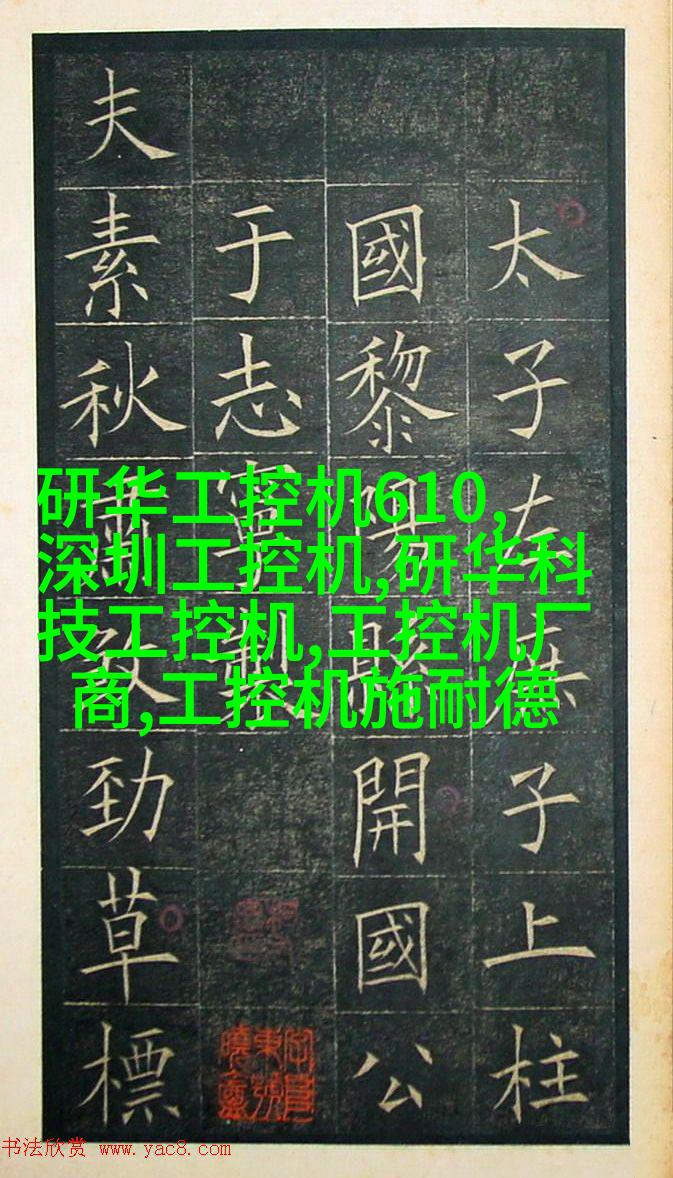 太子左庶子上柱
國黎陽縣開國公
于志寧製
夫素秋肅勁草標
研华工控机610,
深圳工控机,研华科
技工控机,工控机厂
商,工控机施耐德
书法欣赏 www.yac8.com